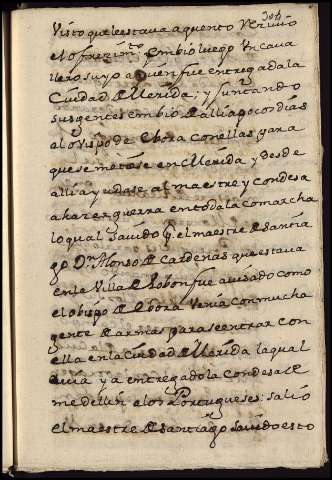 304
Visto que le estava a quento Reçivio
el ofreçim.to Embio luego Un cava
llero suyo a quien fue entregada la
Ciudad de Merida; y juntando
sus gentes embio de alli a pocos dias
el oVispo de Ebora con ellas para
que se metiese en Merida, y desde
alli ayudase al maestre y condesa
a hazer guerra en toda la comarcha
lo qual savido p.r el maestre de santia
go D.n Alonso de Cardenas que estava
en la Villa de Lobon fue avisado como
el obispo de Ebora Venia con mucha
gente de armas para se entrar con
ella en la Ciudad de Merida la qual
avia ya entregado la Condesa de
medellin a los Portugueses: salio
el maestre de santiago savido esto